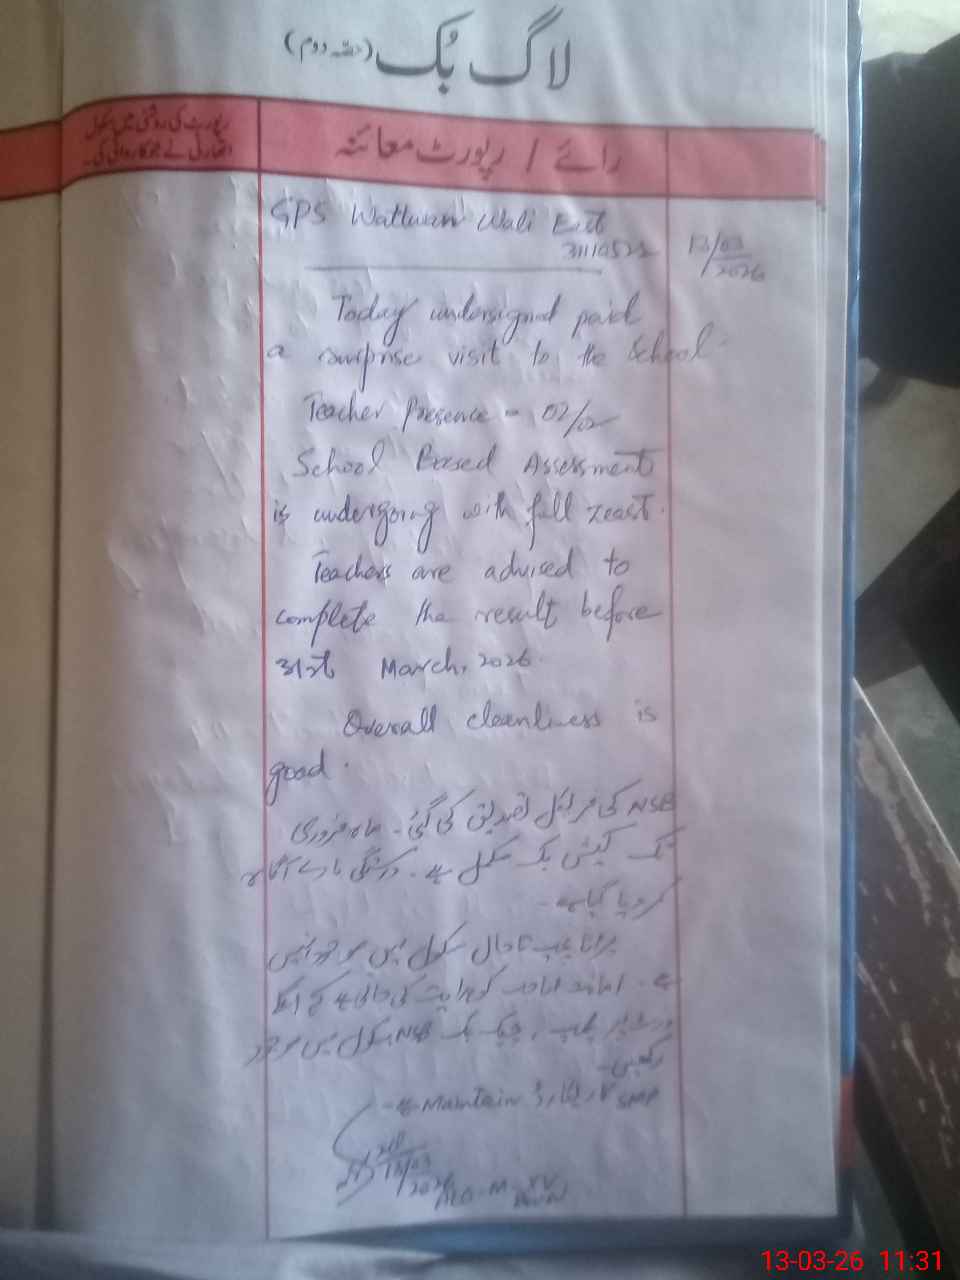 لاگ بُک (حصّہ دوم)
رپورٹ کی روشنی میں سکول
اتھارٹی نے جو کارروائی کی۔
رائے / رپورٹ معائنہ
GPS Wattuan Wali East
31110522
13/03/2026
Today undersigned paid
a surprise visit to the School.
Teacher Presence = 02/02
School Based Assessment
is undergoing with full zeast.
Teachers are advised to
complete the result before
31st March, 2026.
Overall cleanliness is
good.
NSB کی تصدیق کی گئی۔ ماہ فروری
تک کیش بک مکمل ہے۔
کر دیا گیا ہے۔
تاحال سکول میں موجود نہیں
ہے۔ کو ہدایت کی جاتی ہے کہ
چیک بک NSB سکول میں موجود
رکھیں۔
SMP کا ریکارڈ Maintain ہے۔
13/03/2026
13-03-26 11:31